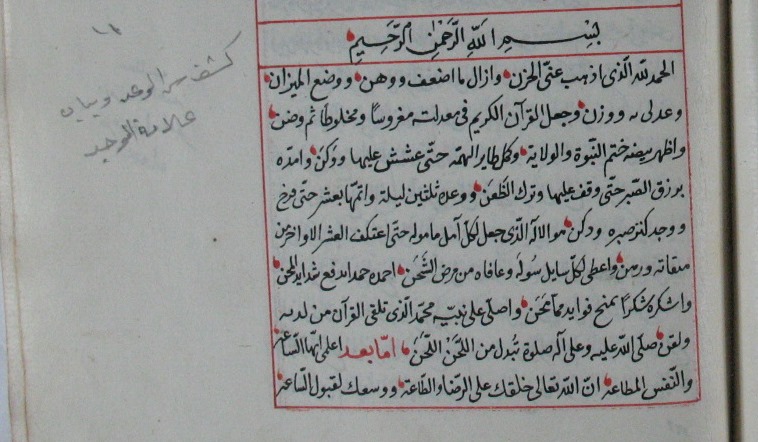 كشف سر الوعد وبيان
علامة الوجد
بسم الله الرحمن الرحيم
الحمد لله الّذى اذهب عنّى الحزن وازال ما اضعف ووهن ووضع الميزان
وعدلى به ووزن وجعل القرآن الكريم فى معدلته مغروسًا ومخلوطًا ثم وضن
واظهر بيضه ختم النّبوة والولاية وكل طاير الهمّه حتّى عشش عليها ووكن وامدّه
برزق الصّبر حتّى وقف عليها وترك الظّعن ووعده ثلثين ليلة واتمّها بعشر حتى فرخ
ووجد كنز صبره ودكن هو الاله الّذى جعل لكلّ آمل مأموله حتى اعتكف العشر الاواخر من
ميقاته ورهن واعطى لكلّ سايل سؤله وعافاه من مرض الشّحن احمده حمدا يدفع شدايد المحن
واشكره شكرًا يمنح فوايد مما يحن واصلى على نبيّه محمّد الّذى تلقى القرآن من لدنه
ولقن صلّى الله عليه وعلى آله صلوة تبدل من اللّحن اللّحن امّا بعد اعلمى ايتها السّاعة
والنّفس المطاعة انّ الله تعالى خلقك على الرضاء والطّاعة ووسعك لقبول السّاعة